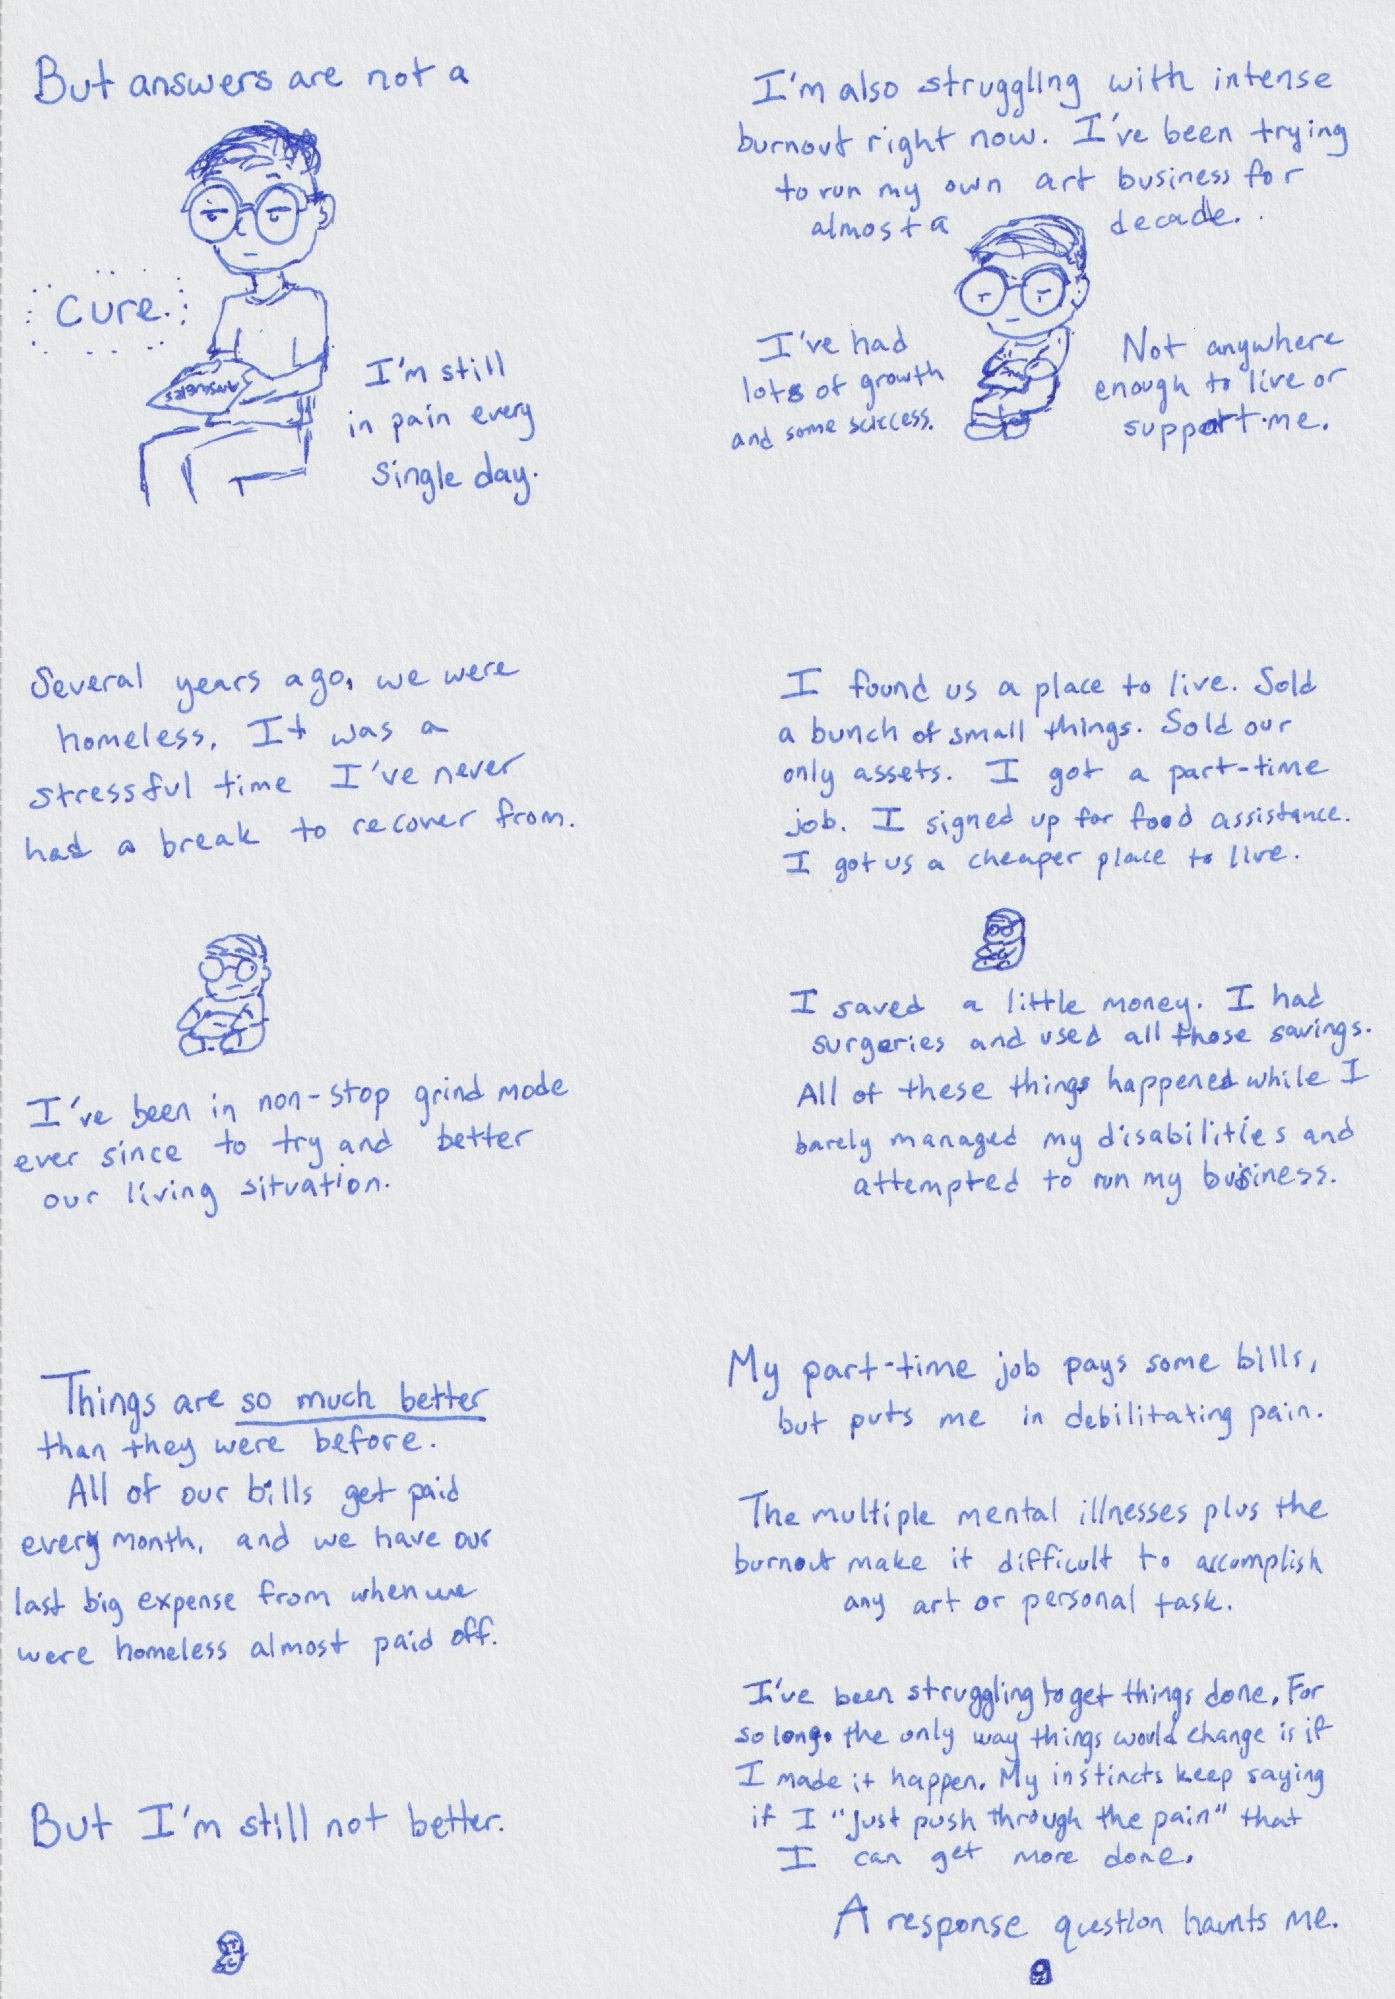 But answers are not a
cure.
ANSWERS
I'm still
in pain every
single day.
I'm also struggling with intense
burnout right now. I've been trying
to run my own art business for
almost a decade.
I've had
lots of growth
and some success.
Not anywhere
enough to live or
support me.
Several years ago, we were
homeless. It was a
stressful time I've never
had a break to recover from.
I've been in non-stop grind mode
ever since to try and better
our living situation.
I found us a place to live. Sold
a bunch of small things. Sold our
only assets. I got a part-time
job. I signed up for food assistance.
I got us a cheaper place to live.
I saved a little money. I had
surgeries and used all those savings.
All of these things happened while I
barely managed my disabilities and
attempted to run my business.
Things are so much better
than they were before.
All of our bills get paid
every month, and we have our
last big expense from when we
were homeless almost paid off.
But I'm still not better.
My part-time job pays some bills,
but puts me in debilitating pain.
The multiple mental illnesses plus the
burnout make it difficult to accomplish
any art or personal task.
I've been struggling to get things done. For
so long, the only way things would change is if
I made it happen. My instincts keep saying
if I "just push through the pain" that
I can get more done.
A response question haunts me.